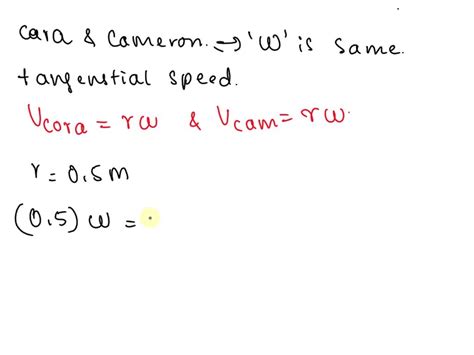 Cara & Cameron. → 'ω' is same.
tangenstial speed.
Vcora = rω & Vcam = rω.
r = 0.5m
(0.5) ω =